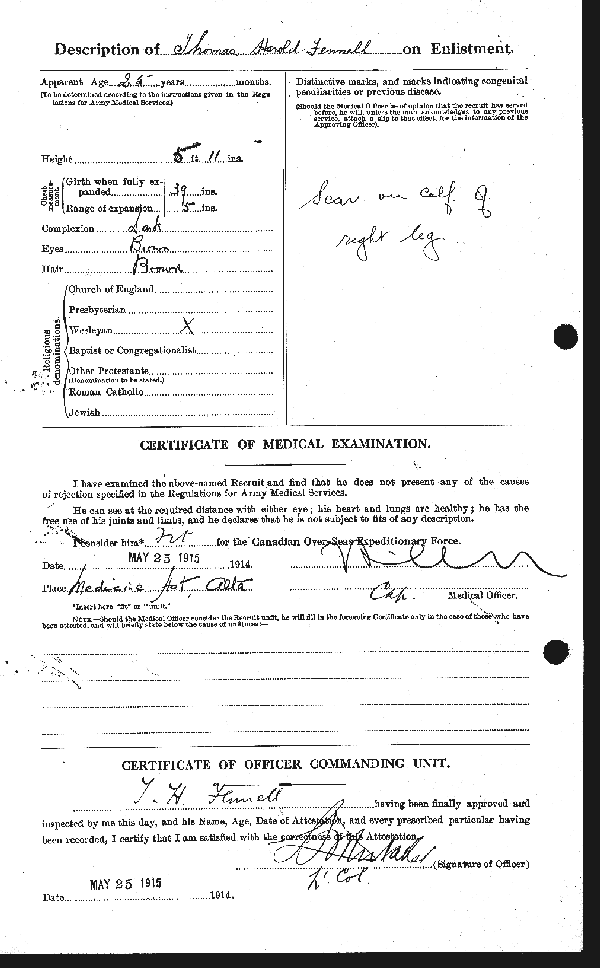 Description of Thomas Harold Fennell on Enlistment.
Apparent Age years months.
(To be determined according to the instructions given in the Regulations for Army Medical Services.)
Height 5 ft 11 ins.
Chest measurement
Girth when fully expanded 39 ins.
Range of expansion 5 ins.
Complexion
Eyes Brown
Hair Brown
Religious denominations.
Church of England
Presbyterian
Wesleyan X
Baptist or Congregationalist
Other Protestants
(Denomination to be stated.)
Roman Catholic
Jewish
Distinctive marks, and marks indicating congenital
peculiarities or previous disease.
(Should the Medical Officer be of opinion that the recruit has served
before, he will, unless the man acknowledges to any previous
service, attach a slip to that effect, for the information of the
Approving Officer).
Scar on calf of
right leg.
CERTIFICATE OF MEDICAL EXAMINATION.
I have examined the above-named Recruit and find that he does not present any of the causes
of rejection specified in the Regulations for Army Medical Services.
He can see at the required distance with either eye; his heart and lungs are healthy; he has the
free use of his joints and limbs, and he declares that he is not subject to fits of any description.
I consider him* Fit for the Canadian Over-Seas Expeditionary Force.
Date MAY 25 1915 1914.
Place Medicine Hat, Alta
Cap. Medical Officer.
*Insert here "fit" or "unfit."
NOTE.—Should the Medical Officer consider the Recruit unfit, he will fill in the foregoing Certificate only in the case of those who have
been attested, and will briefly state below the cause of unfitness:—
CERTIFICATE OF OFFICER COMMANDING UNIT.
T. H. Fennell having been finally approved and
inspected by me this day, and his Name, Age, Date of Attestation, and every prescribed particular having
been recorded, I certify that I am satisfied with the correctness of this Attestation.
(Signature of Officer)
Lt Col.
Date MAY 25 1915 1914.